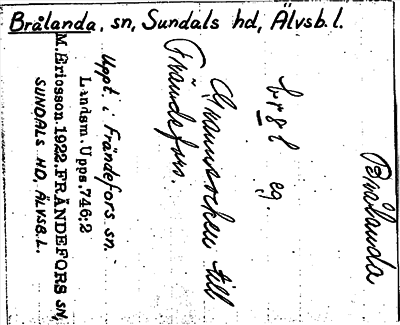 Brålanda, sn, Sundals hd, Älvsb. l.
Brålanda
eg.
Grannsocken till
Frändefors.
Uppt. i Frändefors sn.
Landsm. Upps. 746:2
M. Ericsson. 1922. FRÄNDEFORS SN,
SUNDALS HD, ÄLVSB. L.